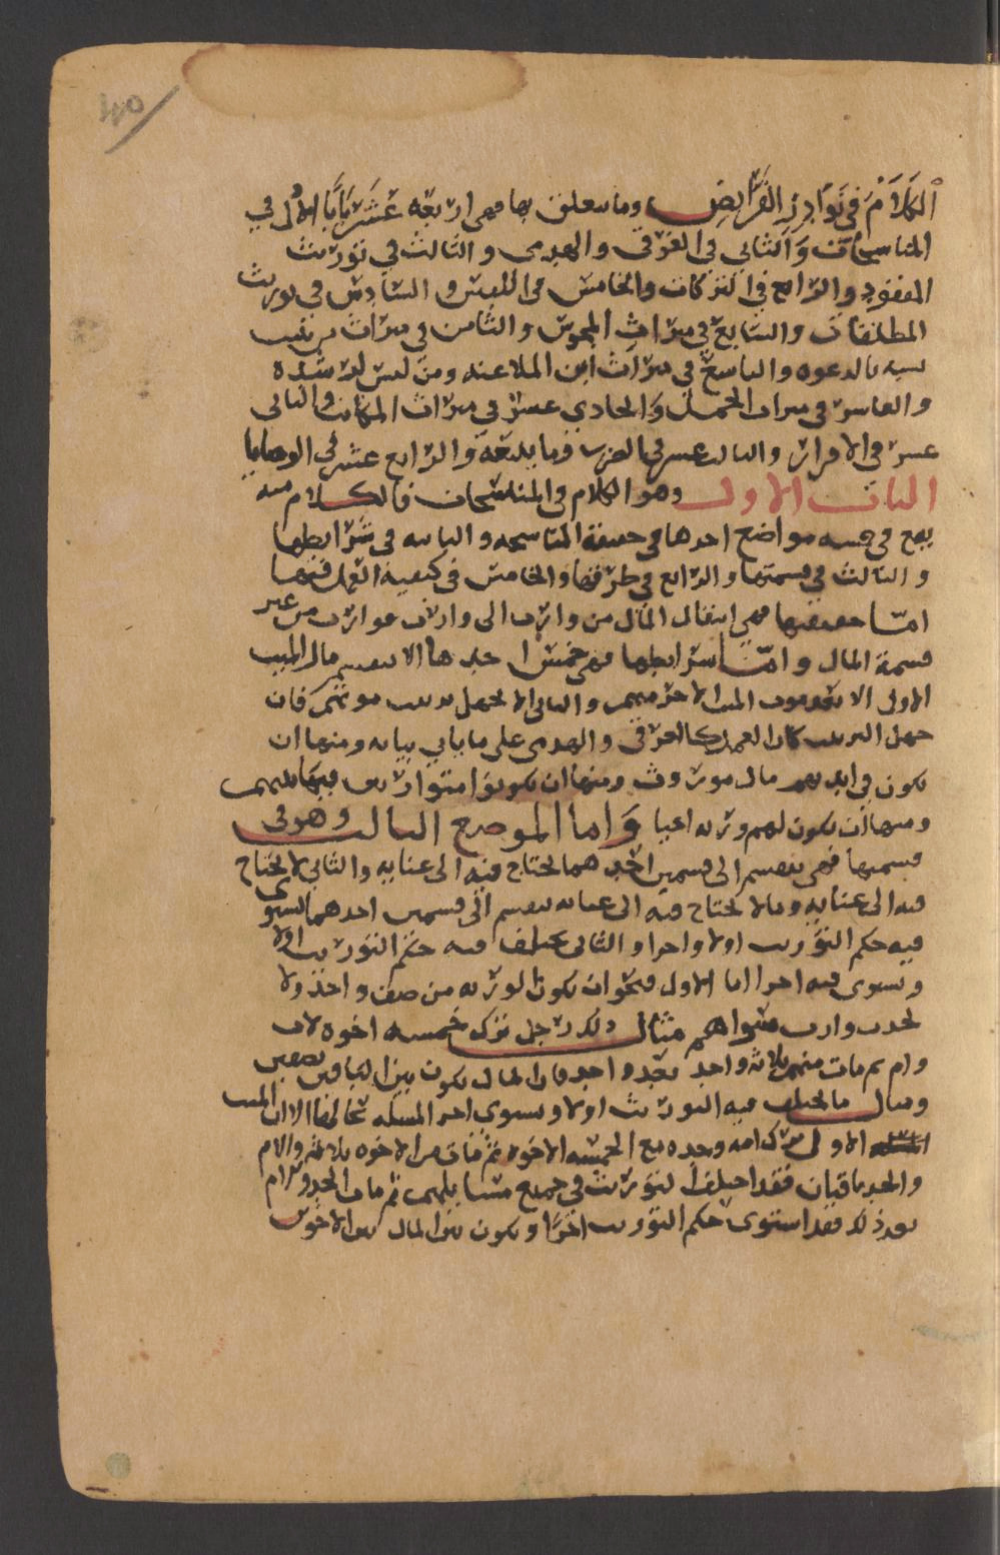 40
الكَلاَمُ في نَوادِرِ الفَرَايضِ وما يتعلق بها فهي اربعة عَشَرَ بَابًا الاول في
المناسخات وَالثاني في الغرقى والهدمى والثالث في توريث
المفقود والرابع في التركات والخامس في اللبس والسادس في توريث
المطلقات والسابع في ميراث المجوس والثامن في ميراث من يثبت
نسبه بالدعوة والتاسع في ميراث ابن الملاعنة ومن ليس لرشده
والعاشر في ميراث الحمل وَالحادي عشر في ميراث المكاتب والثاني
عشر في الاقرار والثالث عشر في الضرب وما يلحقه والرابع عشر في الوصايا
الباب الاول وهو الكلام في المناسخات فالكلام منه
يقع في خمسة مواضع احدها في حقيقة المناسخة والثاني في شرايطها
والثالث في قسمتها والرابع في طرقها والخامس في كيفية العمل فيها
امّا حقيقتها فهي انتقال المال من وارث الى وارث موارث من غير
قسمة المال وامّا شرايطها فهي خمس احدها الا يقسم مال الميت
الاول الا بعد موت الميت الاخر منهم والثاني الا يجهل ترتيب موتهم فان
جهل الترتيب كان العمل كالغرقى والهدمى على ما ياتي بيانه ومنها ان
يكون في ايديهم مال موروث ومنها ان يكونوا متوارثين فيما بينهم
ومنها ان يكون لهم ورثة احيا وَاما الموضع الثالث وهو في
قسمتها فهي تنقسم الى قسمين احدهما يحتاج فيه الى عناية والثاني لا يحتاج
فيه الى عناية وما لا يحتاج فيه الى عناية ينقسم الى قسمين احدهما يستوي
فيه حكم التوريث اولا واخرا والثاني يختلف فيه حكم التوريث اولا
ويستوي فيه اخرا اما الاول فنحو ان يكون الورثة من صنف واحد ولا
يحدث وارث سواهم مثال ذلك رجل ترك خمسة اخوة لاب
وام ثم مات منهم ثلاثة واحد بعد واحد فان المال يكون بين الباقين نصفين
ومثال ما يختلف فيه التوريث اولا ويستوي اخر المسلة بحالها الا ان الميت
الاول ترك امه وجده مع الخمسة الاخوة ثم مات من الاخوة ثلاثة والام
والجد باقيان فقد اختلف التوريث في جميع مسايلهم ثم مات الجد والام
بعد ذلك فقد استوى حكم التوريث اخرًا ويكون بين المال بين الاخوين